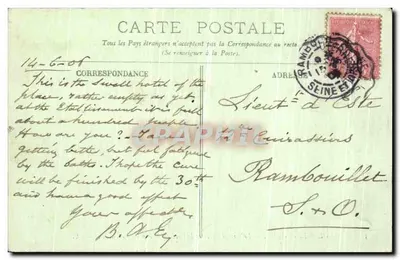 CARTE POSTALE
Tous les Pays étrangers n'acceptent pas la Correspondance au recto
(Se renseigner à la Poste)
CORRESPONDANCE
14-6-06
This is the small hotel of the
place, rather empty as yet,
at the Etablissement it is full
about a hundred people.
How are you? I am
getting better, but feel fatigued
by the baths. I hope the cure
will be finished by the 30th
and have a good effect
Your affect
Lieut = d'Este
Cuirassiers
Rambouillet
S. & O.
RAMBOUILLET
SEINE ET OISE